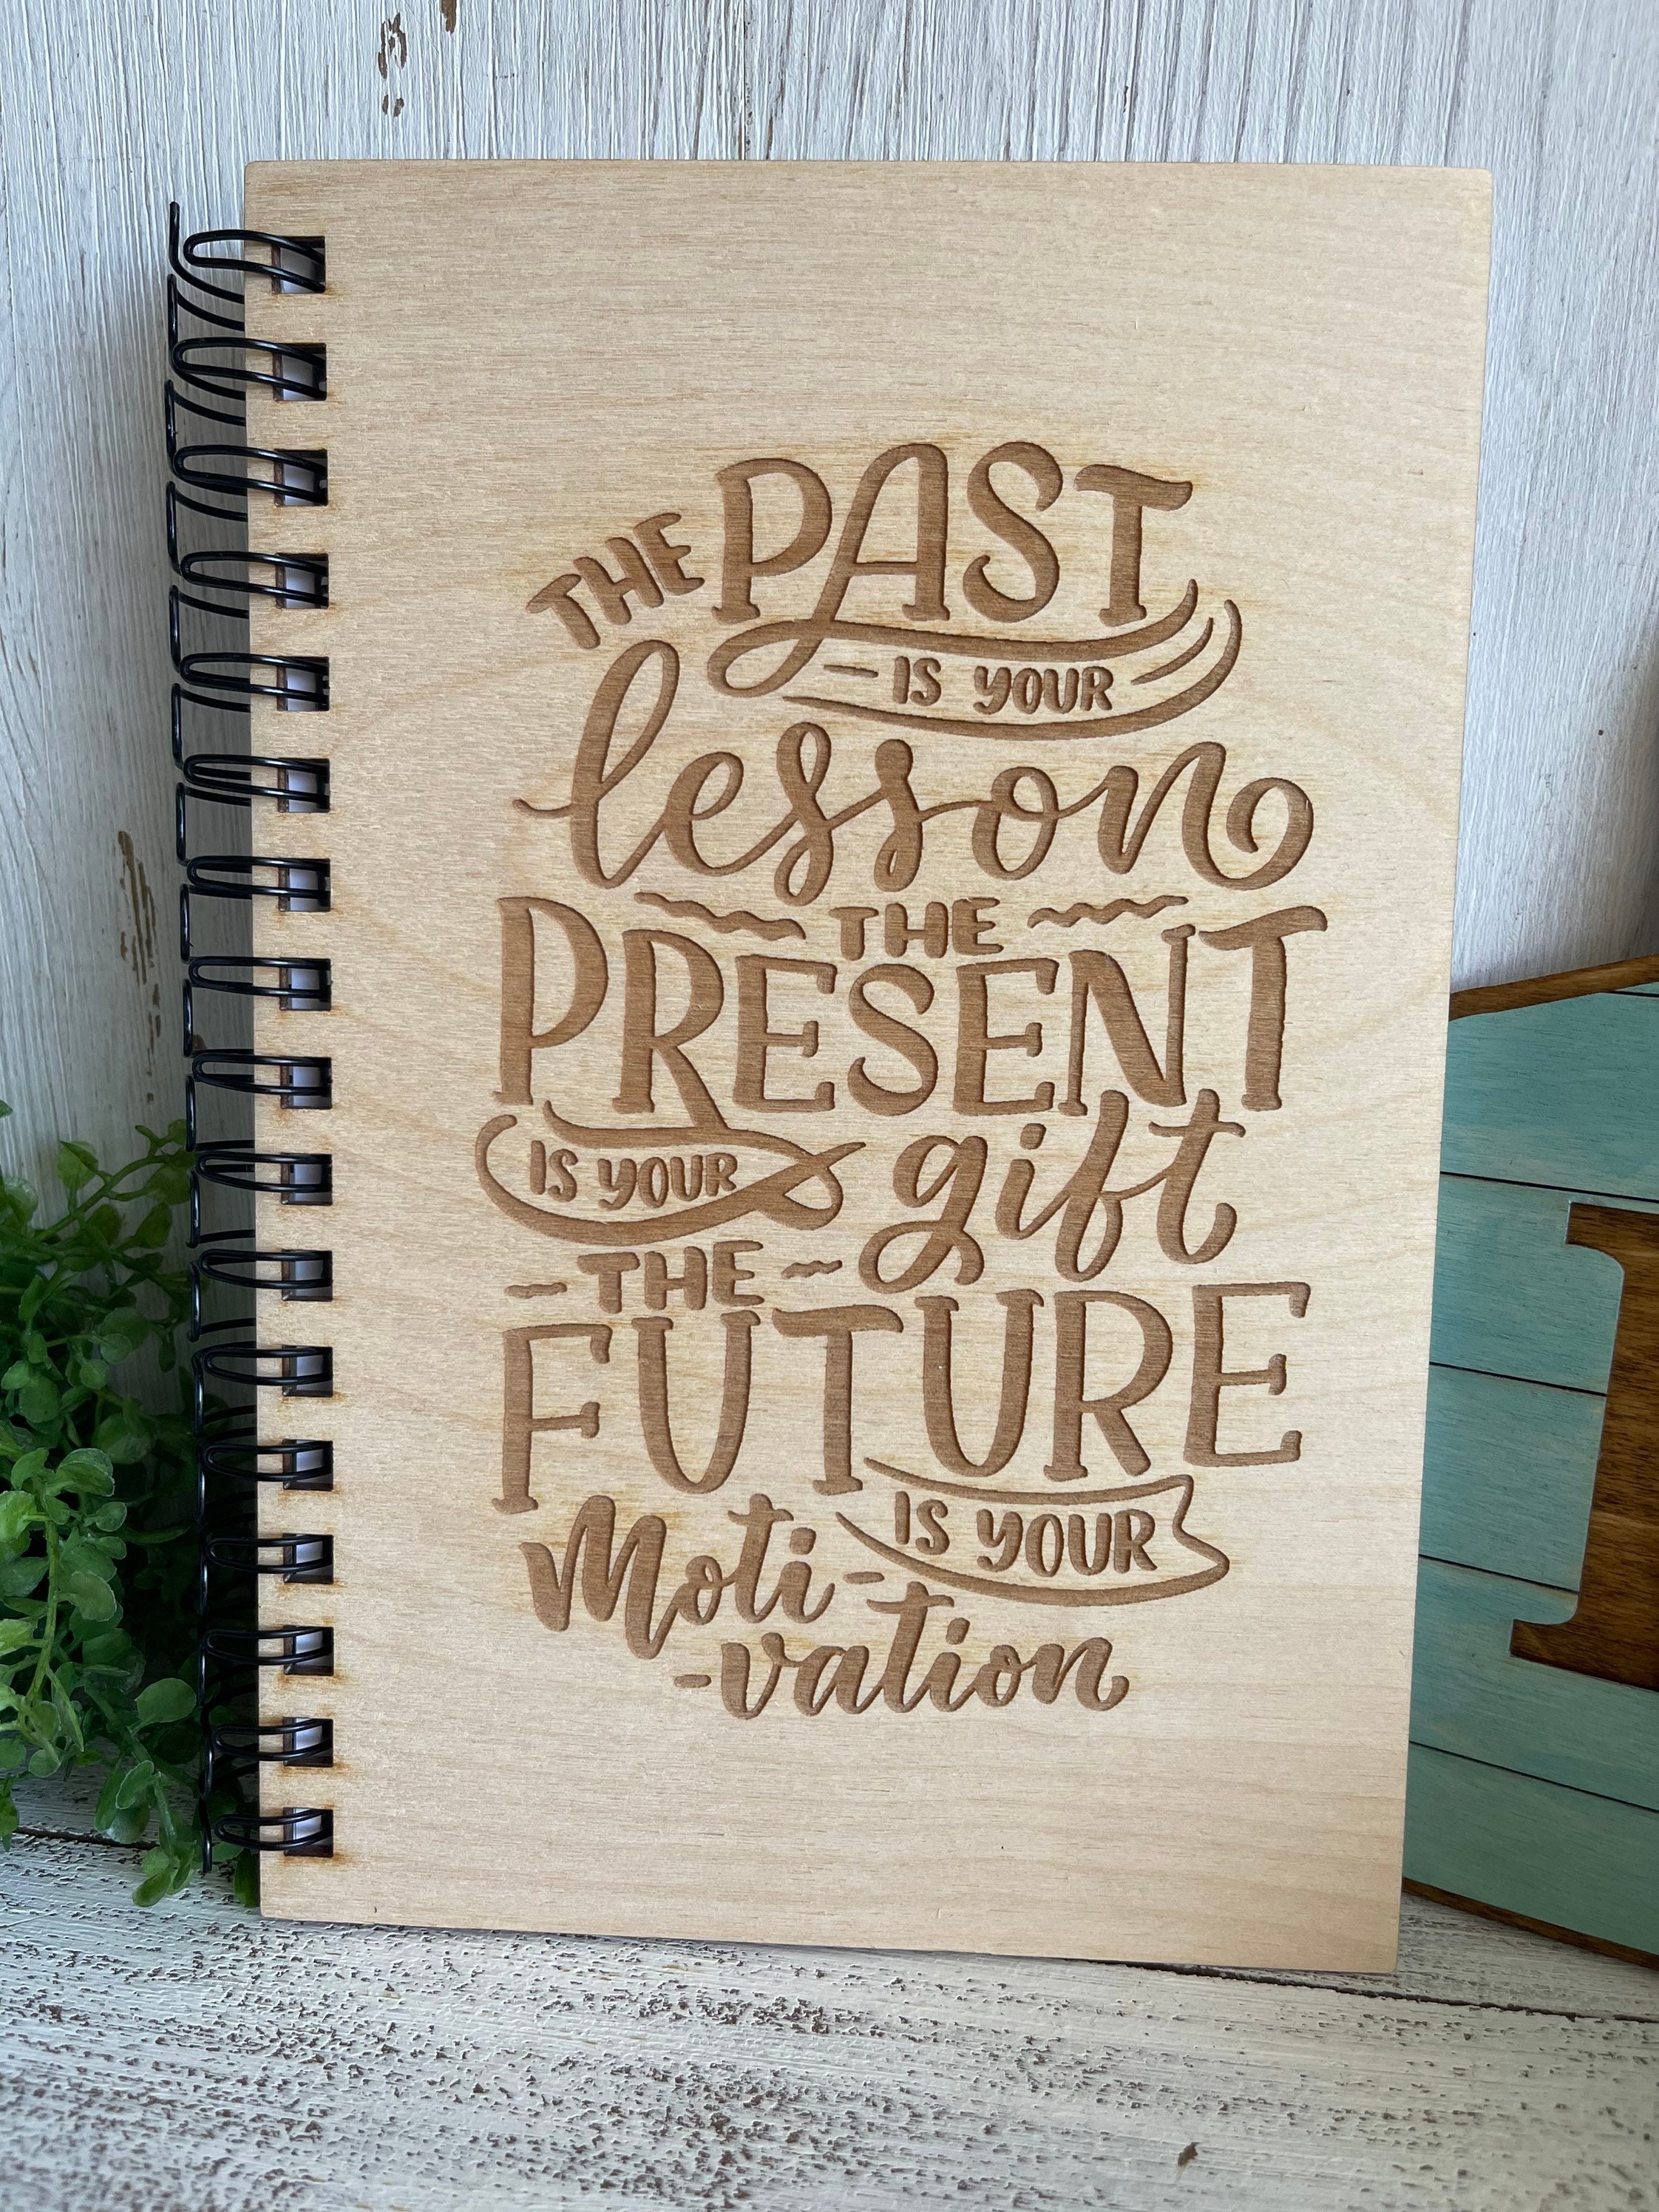 THE PAST
IS YOUR
lesson
THE
PRESENT
IS YOUR gift
THE
FUTURE
IS YOUR
Moti-
-vation